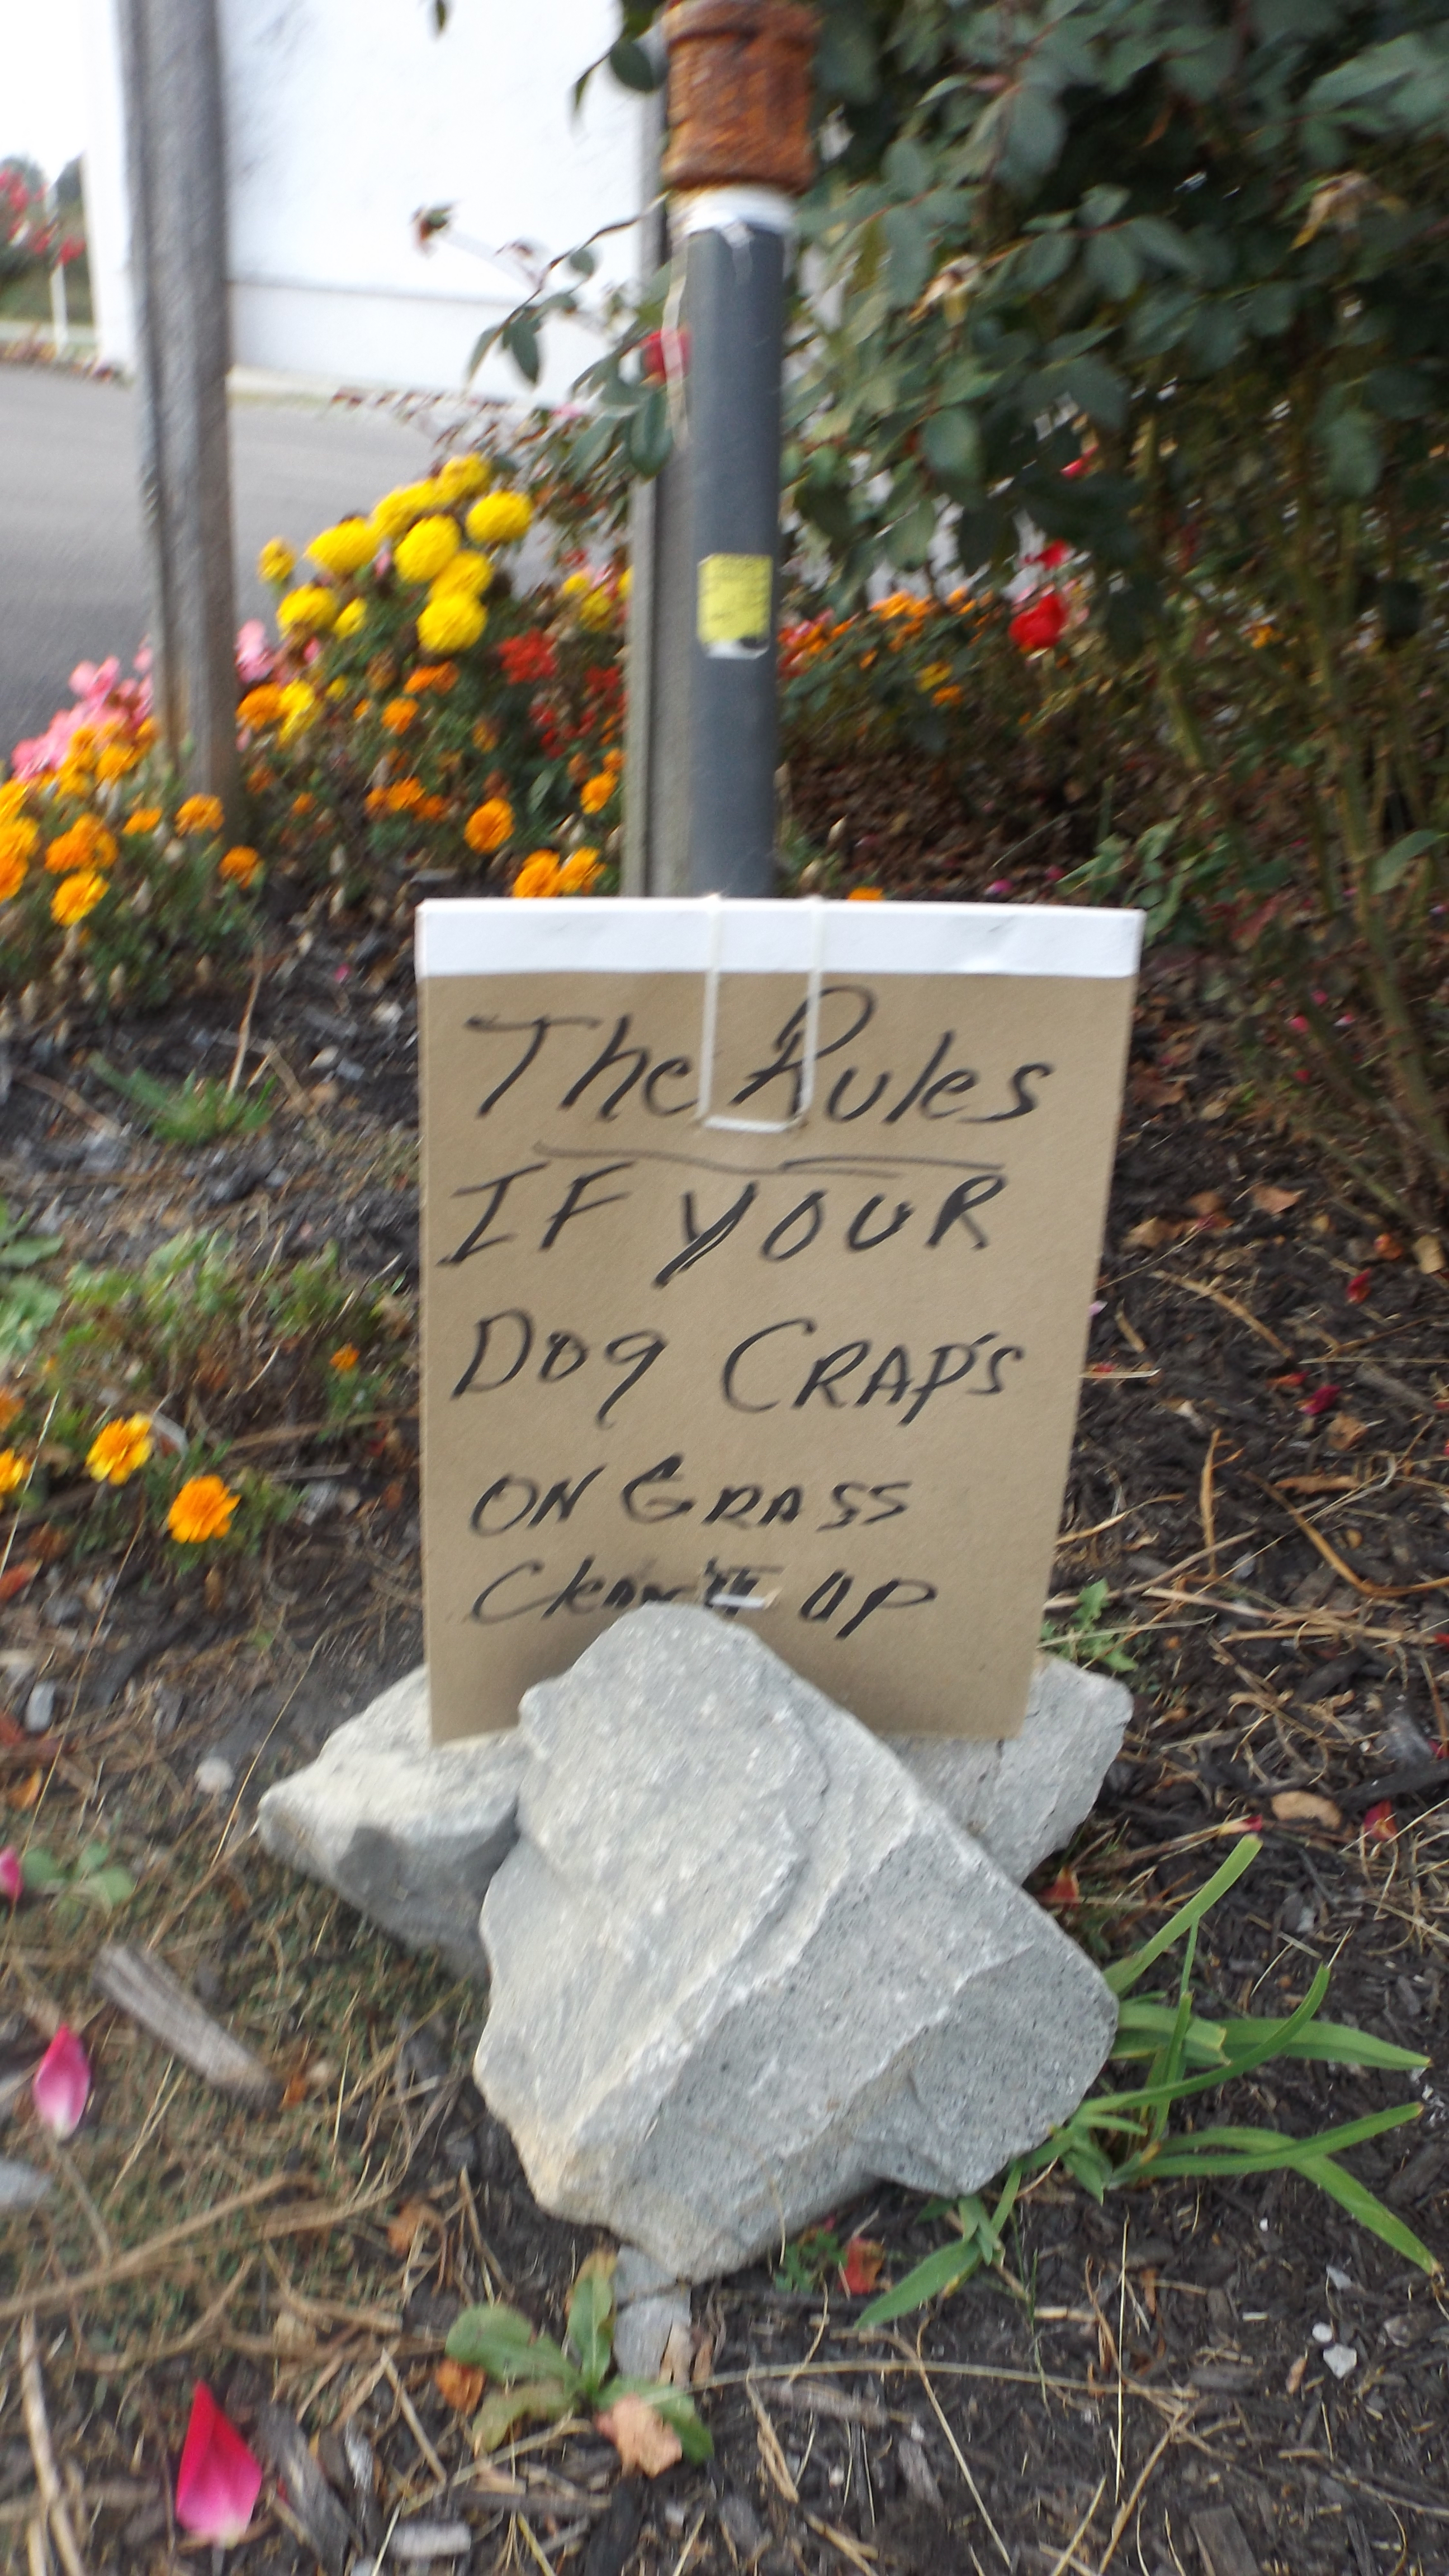 The Rules
IF YOUR
Dog CRAP'S
ON GRASS
Clean it UP